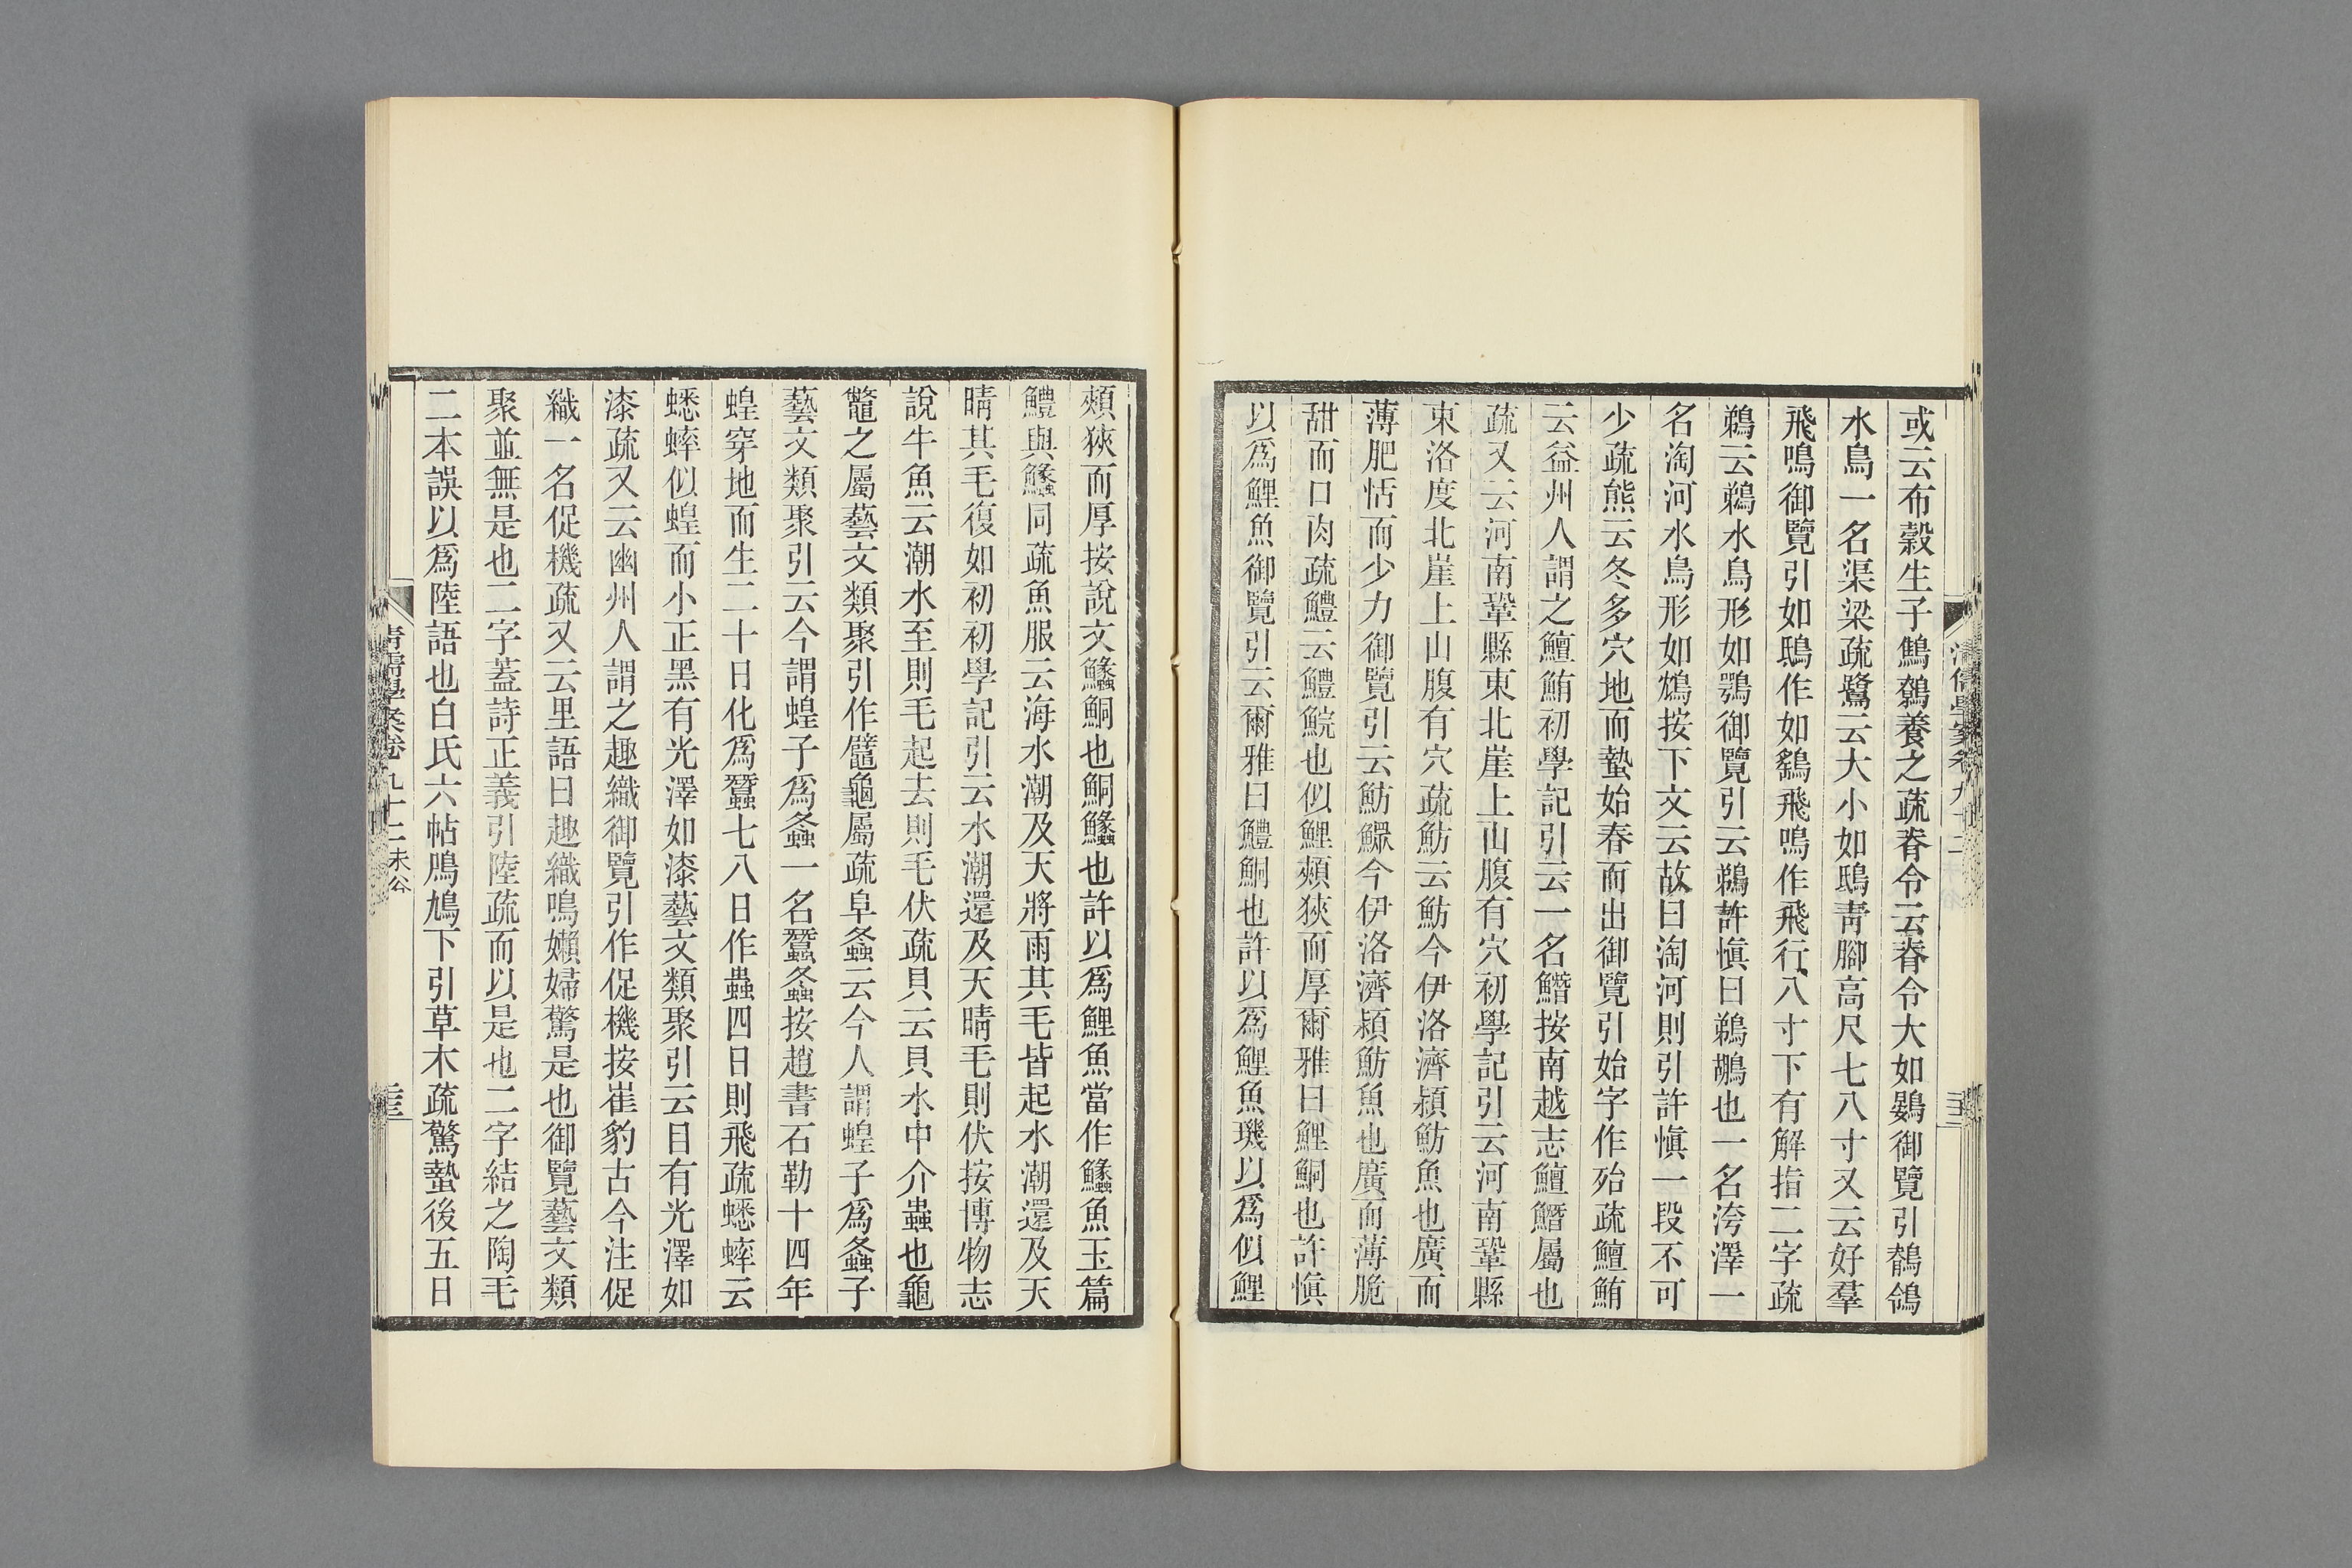 或云布穀生子鷦鷯養之疏脊令云脊令大如鷃御覽引鶺鴒
水鳥一名渠梁疏鷺云大小如鴟青腳高尺七八寸又云好羣
飛鳴御覽引如鴟作如鷂飛鳴作飛行八寸下有解指二字疏
鵜云鵜水鳥形如鶚御覽引云鵜許愼曰鵜鶘也一名洿澤一
名淘河水鳥形如鴆按下文云故曰淘河則引許愼一段不可
少疏熊云冬多穴地而蟄始春而出御覽引始字作殆疏鱣鮪
云益州人謂之鱣鮪初學記引云一名鰌按南越志鱣鰌屬也
疏又云河南鞏縣東北崖上山腹有穴初學記引云河南鞏縣
東洛度北崖上山腹有穴疏魴云魴今伊洛濟潁魴魚也廣而
薄肥恬而少力御覽引云魴鱮今伊洛濟潁魴魚也廣而薄脆
甜而口肉疏鱧云鱧鯇也似鯉頰狹而厚爾雅曰鯉鮦也許愼
以爲鯉魚御覽引云爾雅曰鱧鮦也許以爲鯉魚璣以爲似鯉
頰狹而厚按說文鱺鮦也鮦鱺也許以爲鯉魚當作鱺魚玉篇
鱧與鱺同疏魚服云海水潮及天將雨其毛皆起水潮還及天
晴其毛復如初初學記引云水潮還及天晴毛則伏按博物志
說牛魚云潮水至則毛起去則毛伏疏貝云貝水中介蟲也龜
鼈之屬藝文類聚引作鼊龜屬疏阜螽云今人謂蝗子爲螽子
藝文類聚引云今謂蝗子爲螽一名蠶螽按趙書石勒十四年
蝗穿地而生二十日化爲蠶七八日作蟲四日則飛疏蟋蟀云
蟋蟀似蝗而小正黑有光澤如漆藝文類聚引云目有光澤如
漆疏又云幽州人謂之趣織御覽引作促機按崔豹古今注促
織一名促機疏又云里語曰趣織鳴嬾婦驚是也御覽藝文類
聚並無是也二字蓋詩正義引陸疏而以是也二字結之陶毛
二本誤以爲陸語也白氏六帖鳲鳩下引草木疏驚蟄後五日